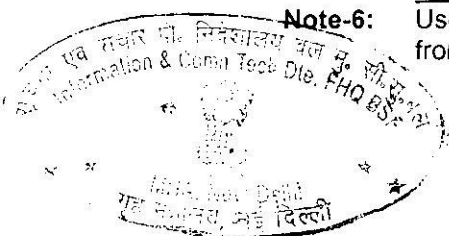 Note-6: Use
from
एवं संचार प्रौ. निदेशालय बल मु. सी.सु.बल
Information & Comn Tech Dte. FHQ BSF
New Delhi
गृह मंत्रालय, नई दिल्ली